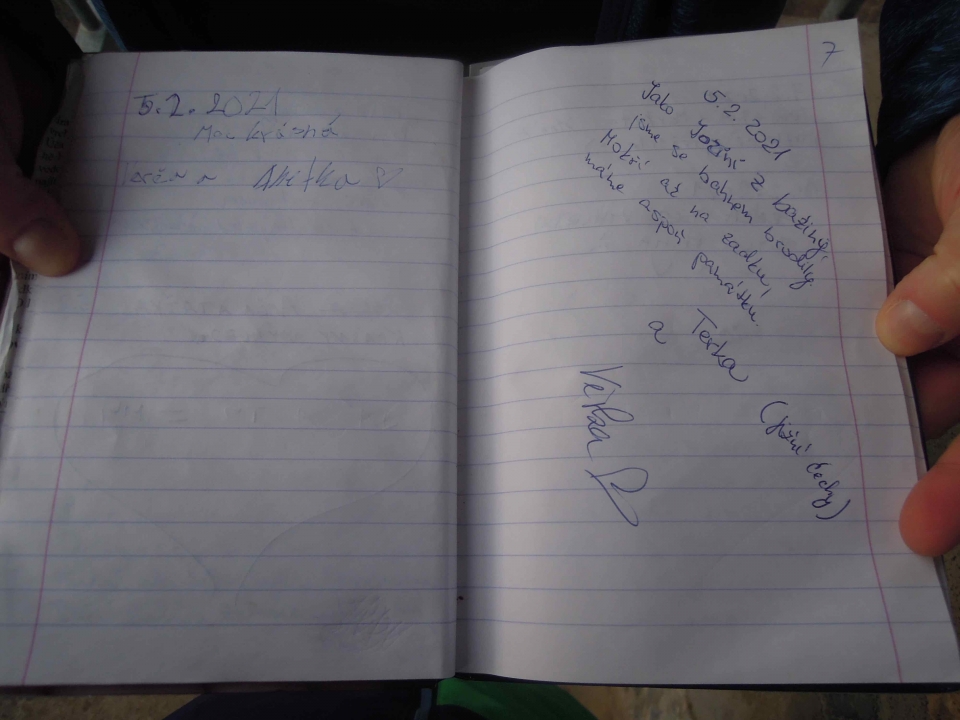 5.2.2021
Moc krásná
Anetka
7
5.2. 2021
Jako Jožini z bažiny,
jsme se bahnem brodily
Mokří až na zadku,
máme aspoň památku.
a Terka
Věrka
(jižní Čechy)